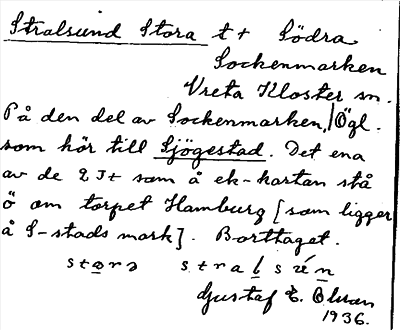 Stralsund Stora t+ Södra
Sockenmarken
Vreta Kloster sn.
På den del av Sockenmarken, Ögl.
som hör till Sjögestad. Det ena
av de 2 J+ som å ek-kartan stå
ö om torpet Hamburg [som ligger
å S-stads mark]. Borttaget.
stora stralsún
Gustaf E. Olsson
1936.